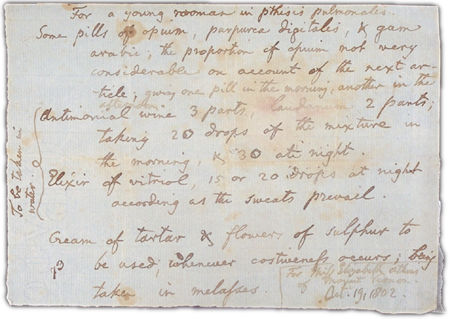 For a young woman in pthisis pulmonalis.
Some pills of opium, purpurea digitalis, & gum
arabic; the proportion of opium not very
considerable on account of the next ar-
ticle; giving one pill in the morning, another in the
afternoon.
Antimonial wine 3 parts, laudanum 2 parts;
taking 20 drops of the mixture in
the morning, & 30 at night.
Elixir of vitriol, 15 or 20 drops at night
according as the sweats prevail.
To be taken in
water.
Cream of tartar & flowers of sulphur to
be used, whenever costiveness occurs; being
taken in melasses.
For Miss Elizabeth
of Mount Vernon
Oct. 19, 1802.